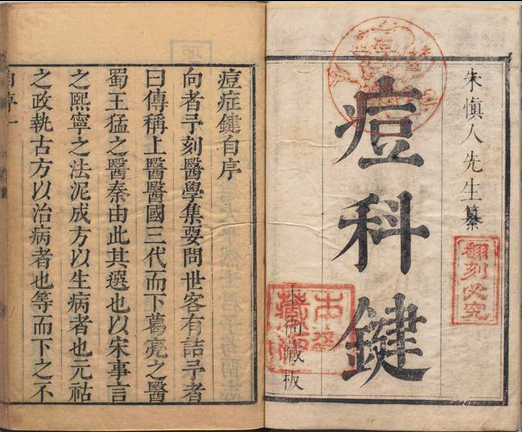 朱慎人先生纂
痘科鍵
本衙藏板
翻刻必究
痘症鍵自序
向者予刻醫學集要問世客有詰予者
曰傳稱上醫醫國三代而下葛亮之醫
蜀王猛之醫秦由此其選也以宋事言
之熙寧之法泥成方以生病者也元祐
之政執古方以治病者也等而下之不
自序一